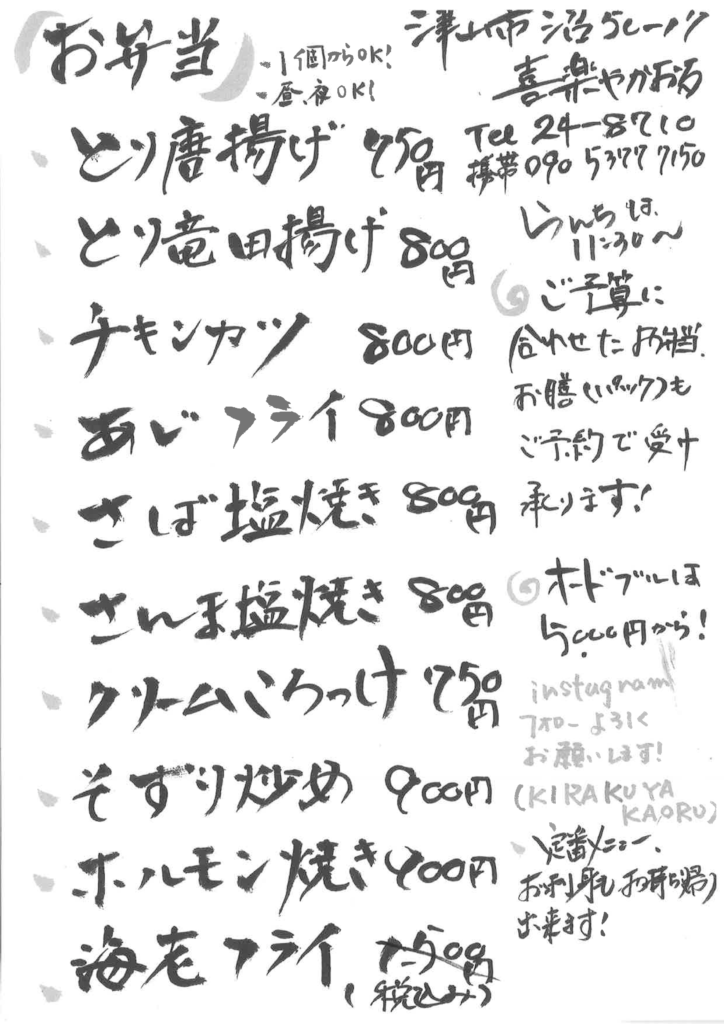 お弁当
・1個からOK!
・昼、夜OK!
とり唐揚げ 750円
とり竜田揚げ 800円
チキンカツ 800円
あじフライ 800円
さば塩焼き 800円
さんま塩焼き 800円
クリームころっけ 750円
そずり炒め 900円
ホルモン焼き 900円
海老フライ 1500円
(税込み)
津山市沼
喜楽やかおる
Tel 24-8710
携帯 090 5377 7150
らんちは、
11:30〜
ご予算に
合わせたお弁当、
お膳(パック)も
ご予約で受け
承ります!
オードブルは
5,000円から!
instagram
フォローよろしく
お願いします!
(KIRAKUYA
KAORU)
定番メニュー、
お刺身もお持ち帰り
出来ます!